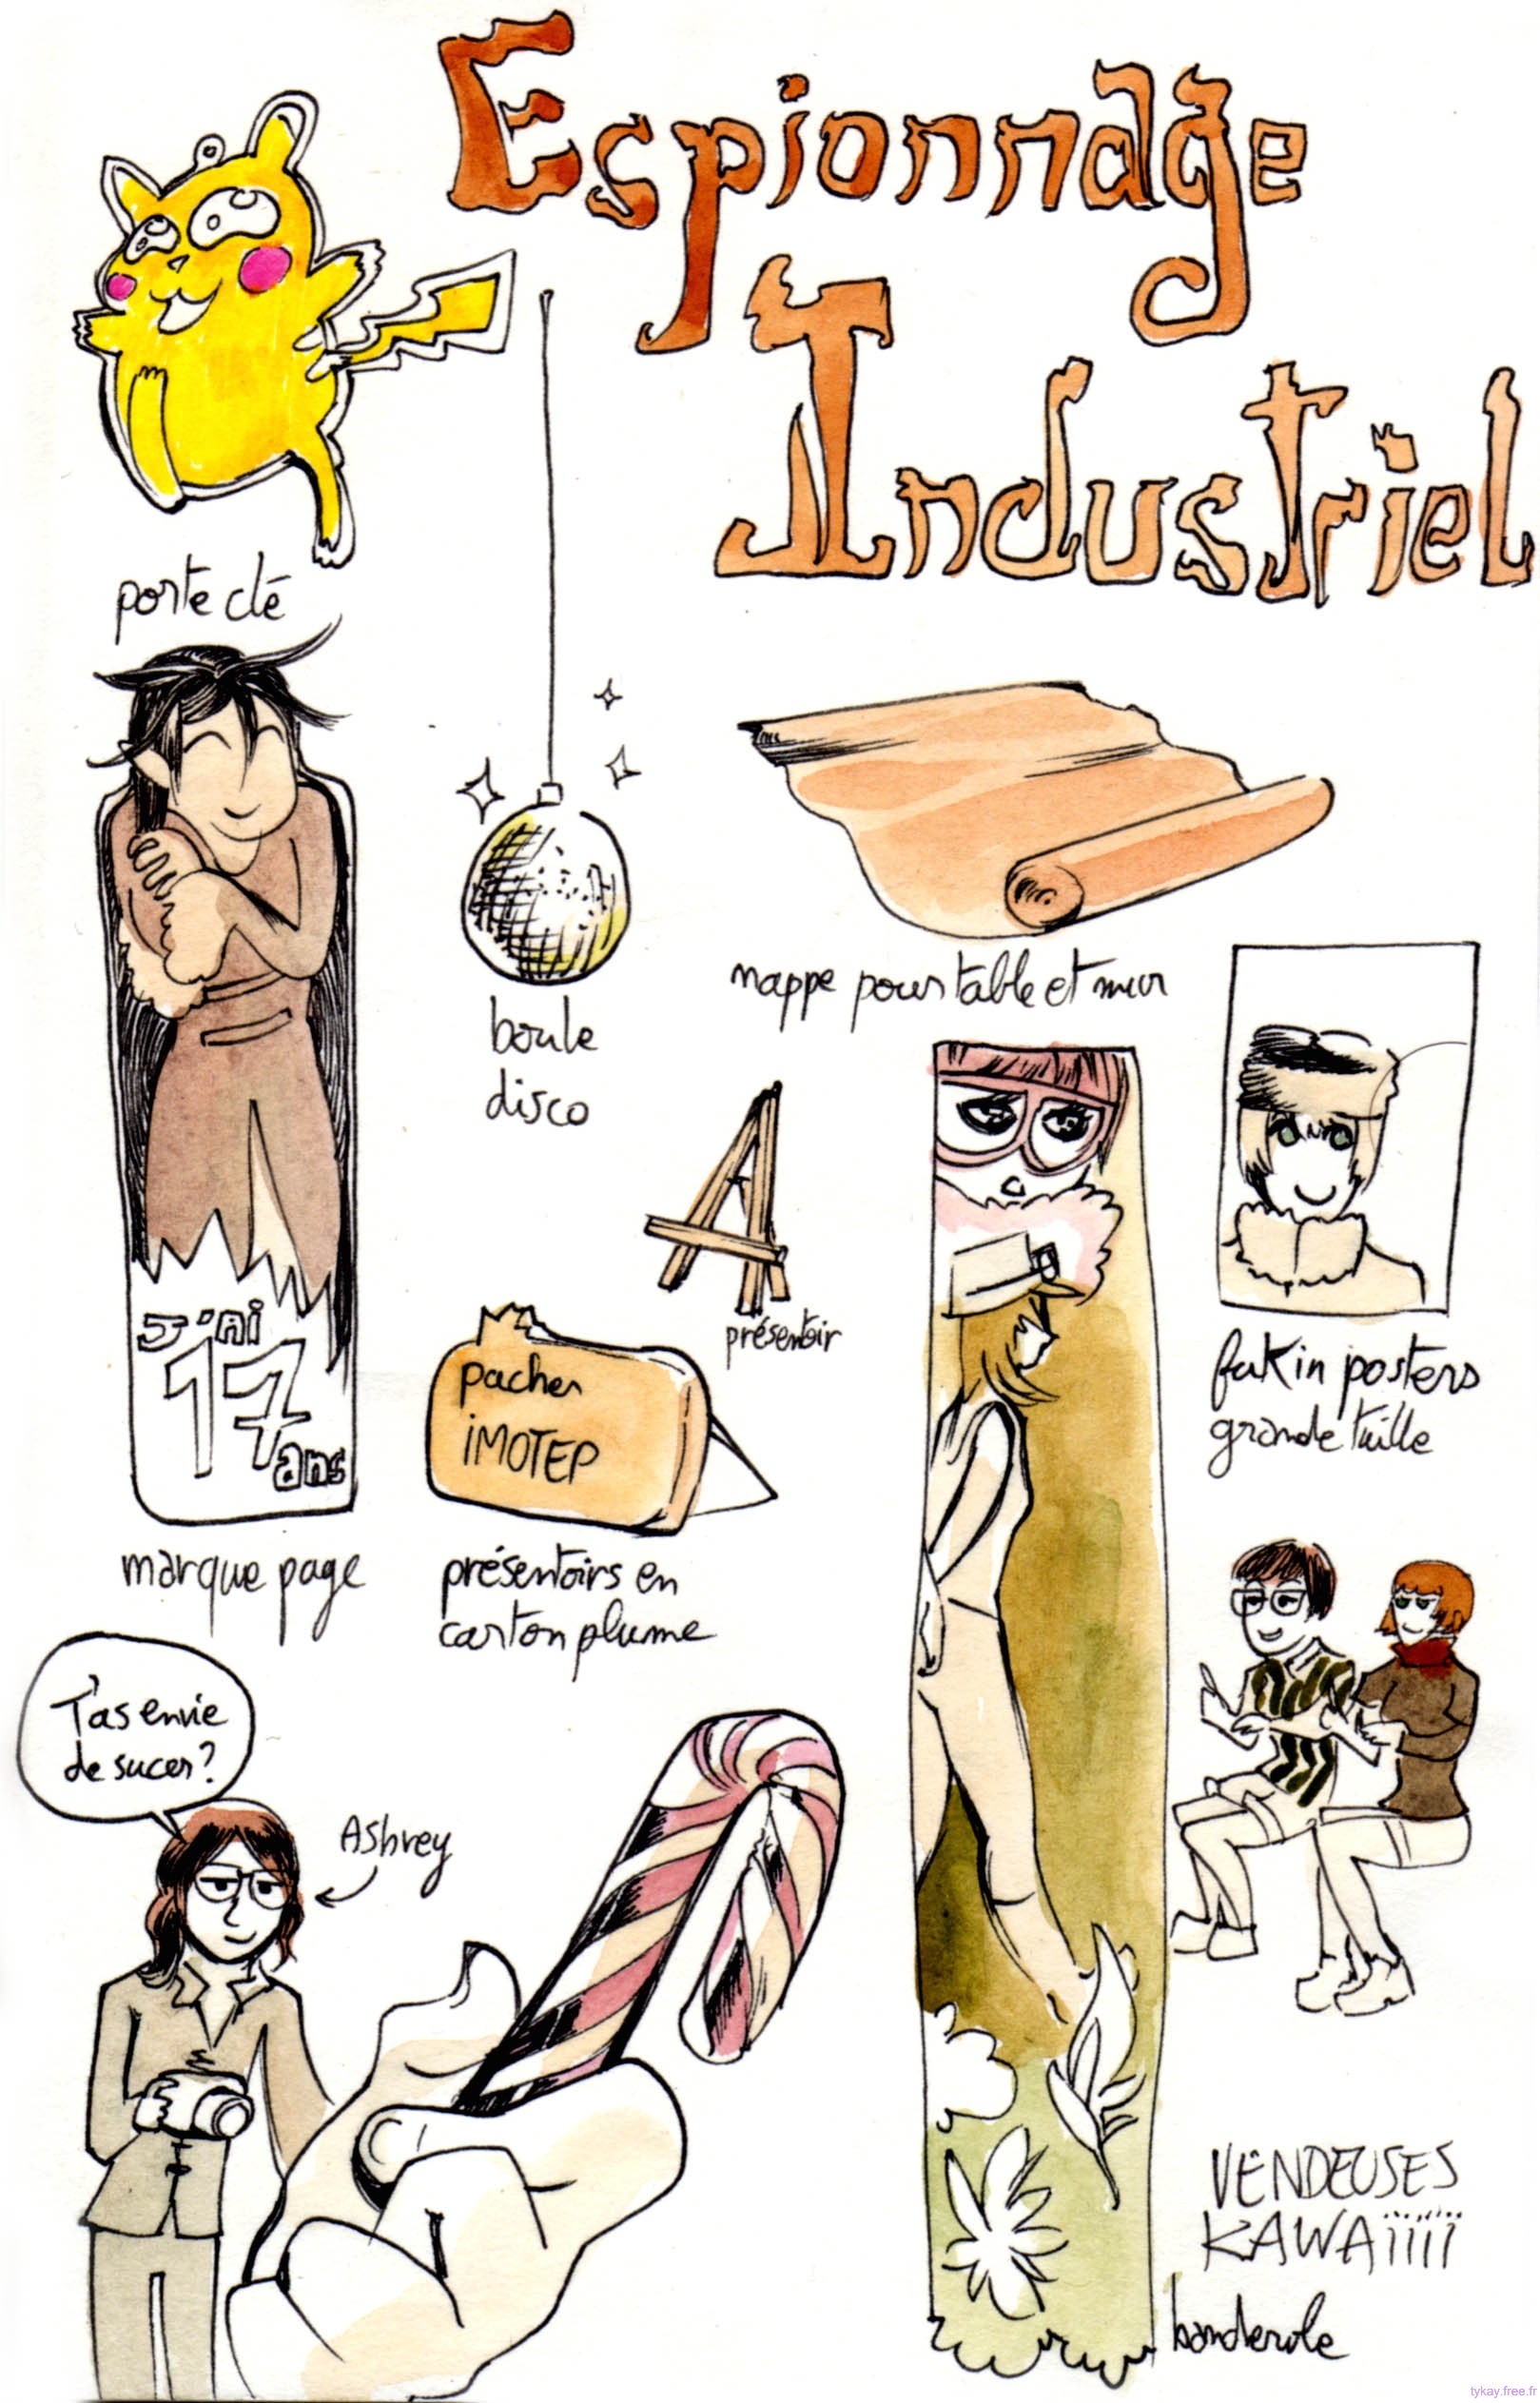 Espionnage
Industriel
porte clé
boule
disco
nappe pour table et mur
présentoir
pacher
iMOTEP
présentoirs en
carton plume
J'Ai
17
ans
marque page
fukin posters
grande taille
T'as envie
de sucer?
Ashrey
VENDEUSES
KAWAiiiii
banderole
tykay.free.fr